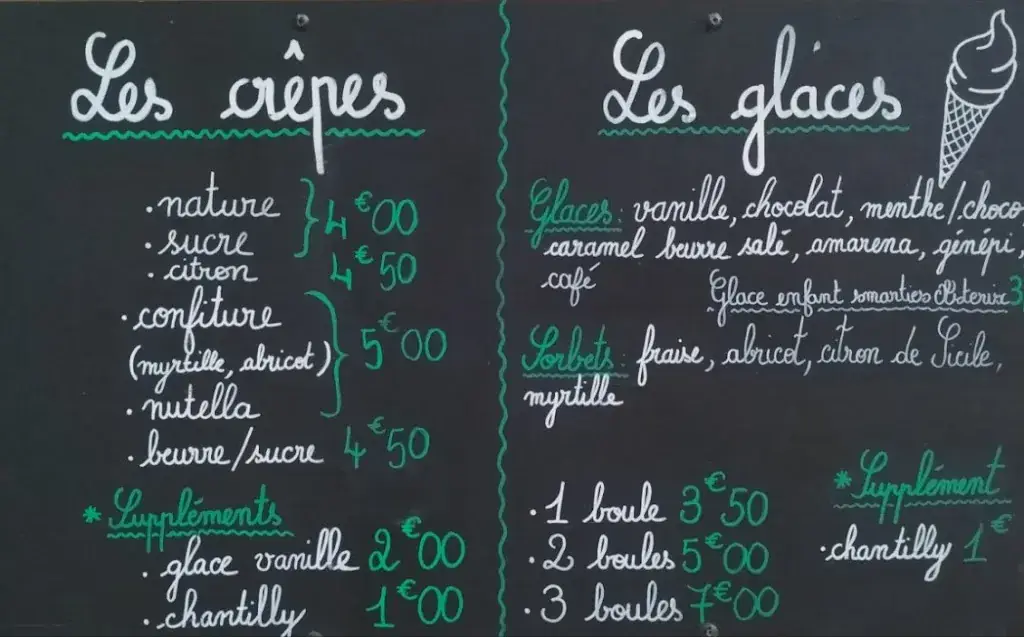 Les crêpes
. nature
. sucre
4€00
. citron 4€50
. confiture
(myrtille, abricot)
. nutella
5€00
. beurre/sucre 4€50
* Suppléments
. glace vanille 2€00
. chantilly 1€00
Les glaces
Glaces : vanille, chocolat, menthe/choco
caramel beurre salé, amarena, génépi,
café
Glace enfant smarties 3
Sorbets : fraise, abricot, citron de Sicile,
myrtille
. 1 boule 3€50
. 2 boules 5€00
. 3 boules 7€00
* Supplément
. chantilly 1€